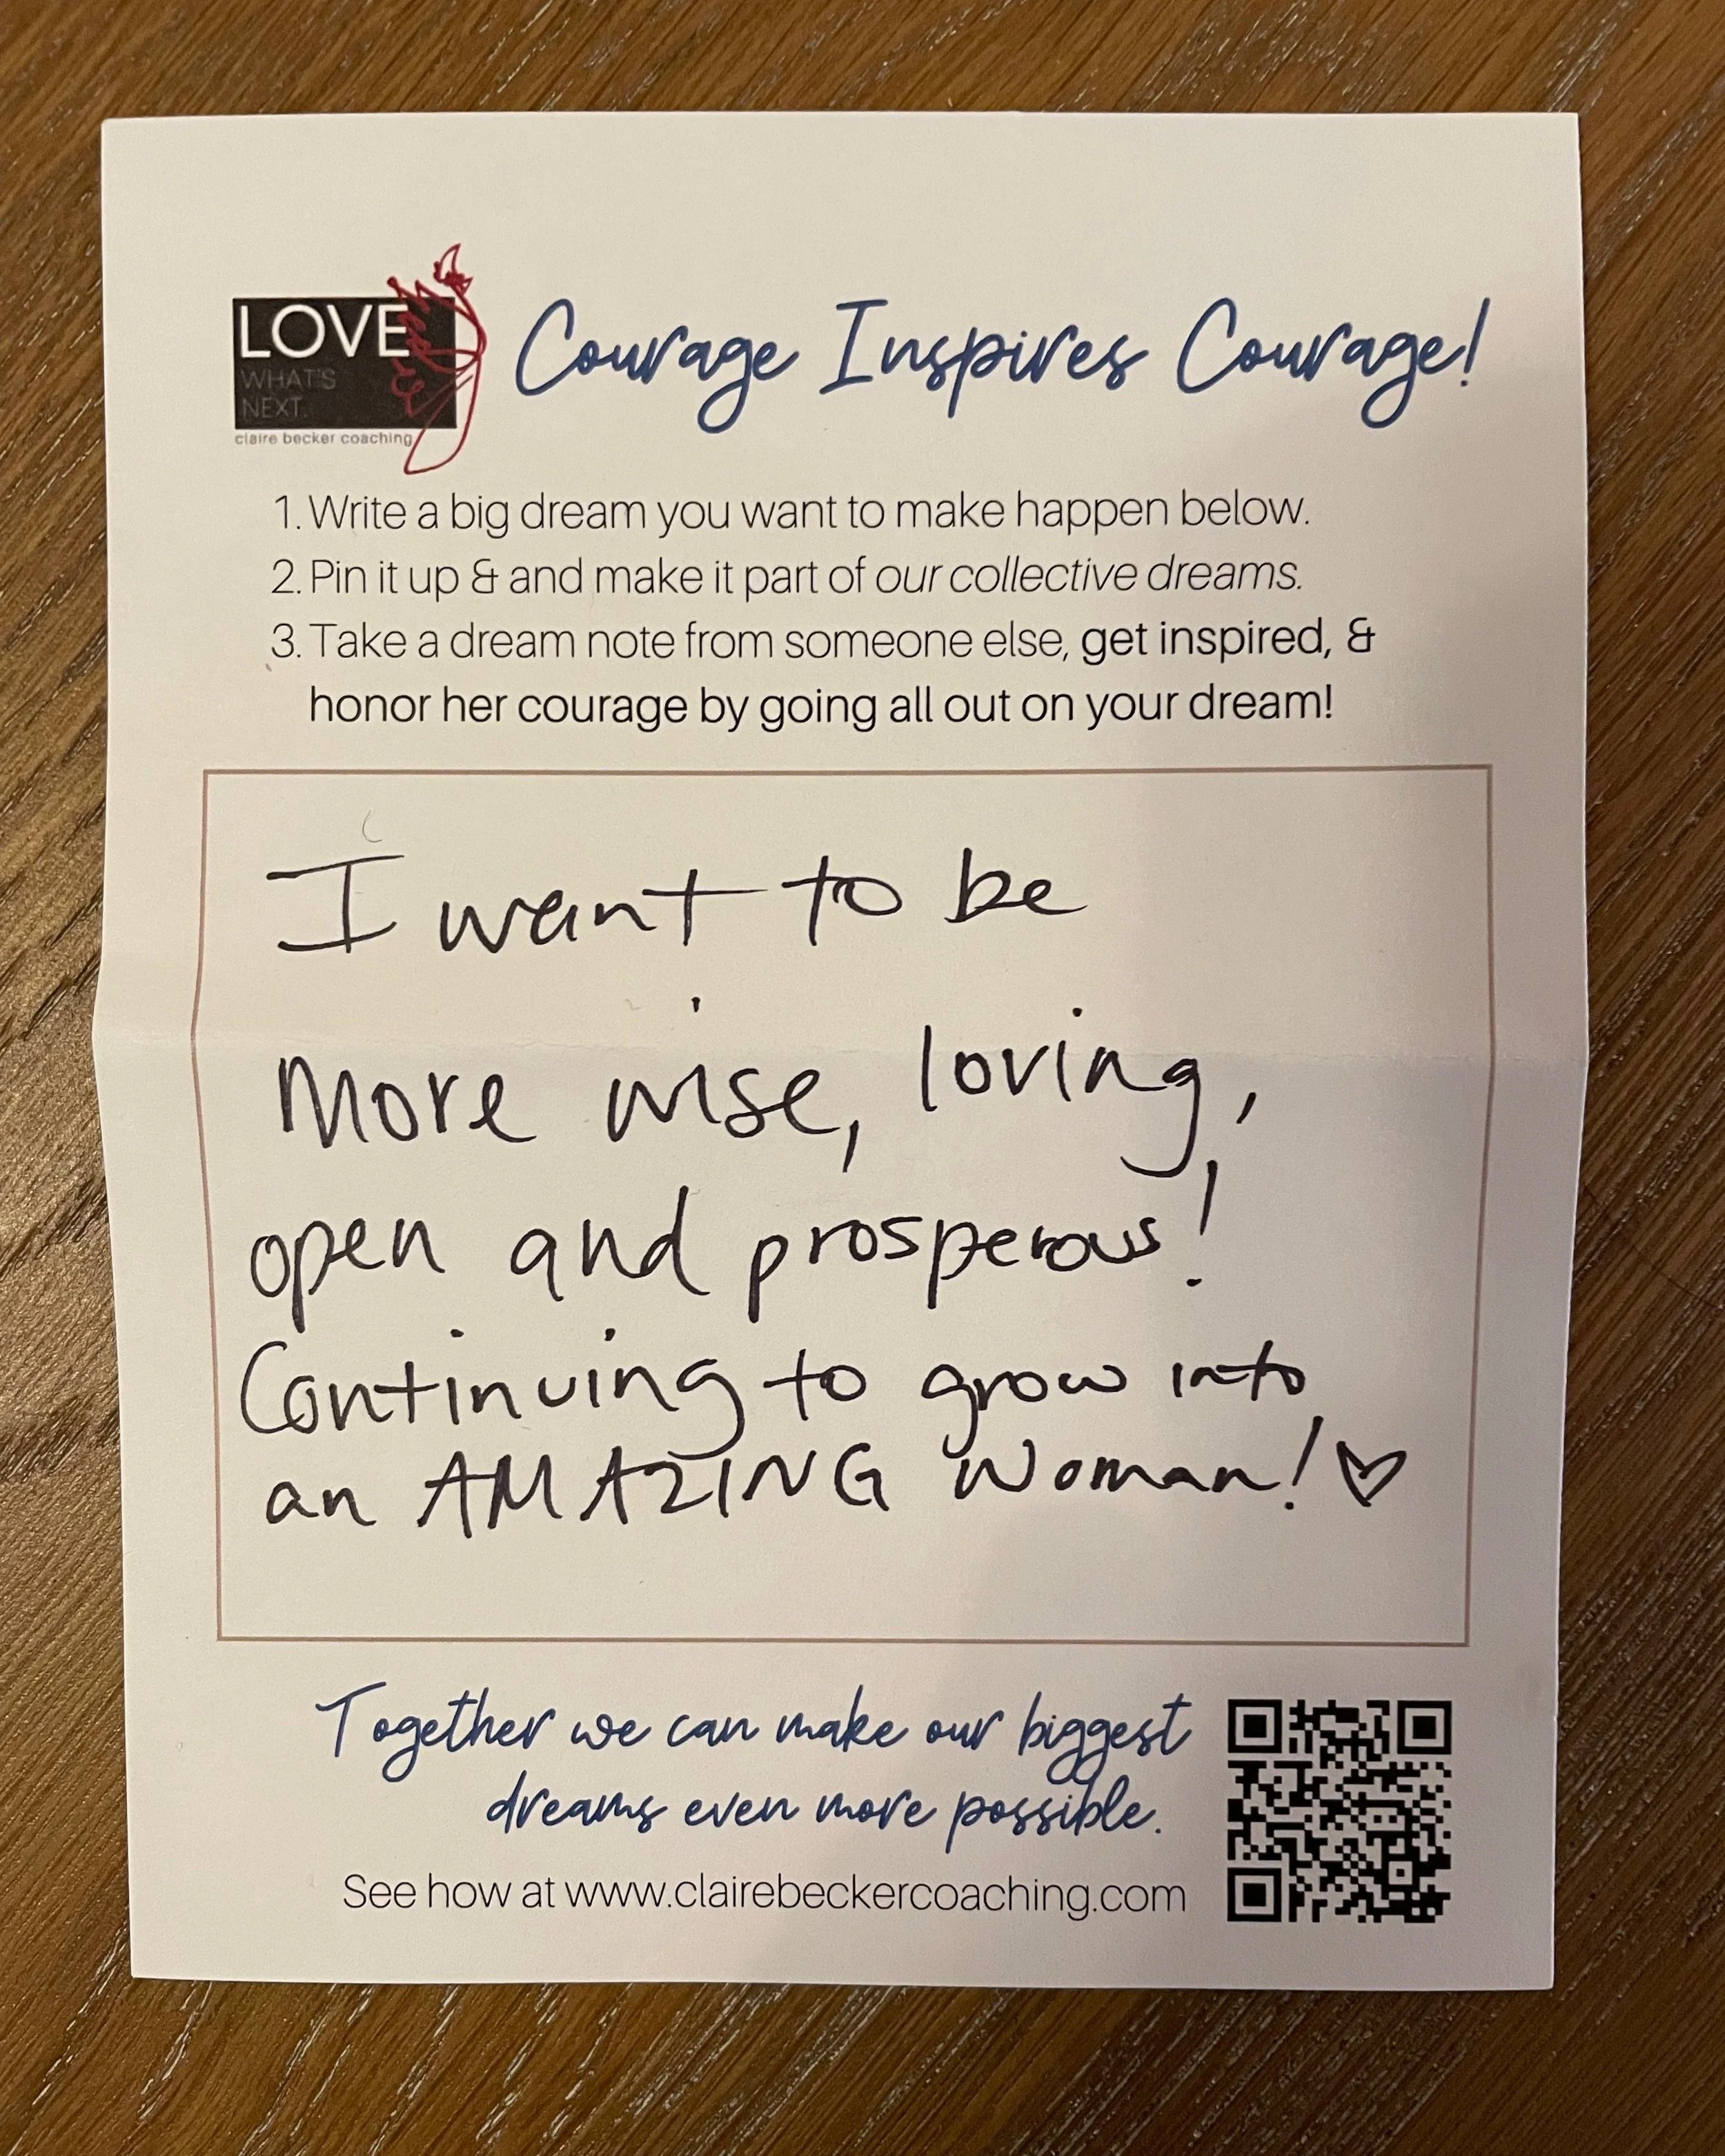 LOVE
WHAT'S
NEXT.
claire becker coaching
Courage Inspires Courage!
1. Write a big dream you want to make happen below.
2. Pin it up & and make it part of our collective dreams.
3. Take a dream note from someone else, get inspired, &
honor her courage by going all out on your dream!
I want to be
More wise, loving,
open and prosperous!
Continuing to grow into
an AMAZING Woman! ♡
Together we can make our biggest
dreams even more possible.
See how at www.clairebeckercoaching.com